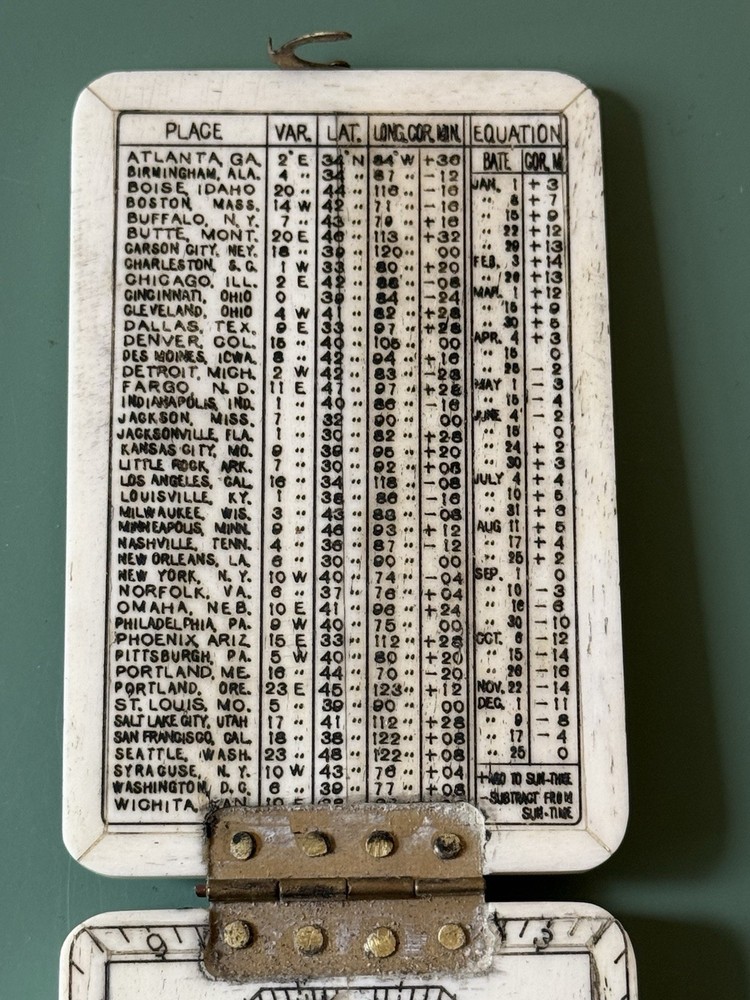 PLACE VAR. LAT. LONG. COR. MIN. EQUATION
DATE COR. M
ATLANTA, GA. 2° E 34° N 84° W +36
BIRMINGHAM, ALA. 4 " 34 " 87 " -12 JAN. 1 +3
BOISE IDAHO 20 " 44 " 116 " -16 " 8 +7
BOSTON MASS. 14 W 42 " 71 " -16 " 15 +9
BUFFALO, N.Y. 7 " 43 " 79 " +16 " 22 +12
BUTTE, MONT. 20 E 46 " 113 " +32 " 29 +13
CARSON CITY, NEV. 18 " 39 " 120 " 00 FEB. 3 +14
CHARLESTON, S.C. 1 W 33 " 80 " +20 " 26 +13
CHICAGO, ILL. 2 E 42 " 88 " -08 MAR. 1 +12
CINCINNATI, OHIO 0 39 " 84 " -24 " 15 +9
CLEVELAND, OHIO 4 W 41 " 82 " +28 " 30 +5
DALLAS, TEX. 9 E 33 " 97 " +28 APR. 4 +3
DENVER, COL. 15 " 40 " 105 " 00 " 15 0
DES MOINES, IOWA. 8 " 42 " 94 " +16 " 25 -2
DETROIT, MICH. 2 W 42 " 83 " -28 MAY 1 -3
FARGO, N.D. 11 E 47 " 97 " +28 " 15 -4
INDIANAPOLIS, IND. 1 " 40 " 86 " -16 JUNE 4 -2
JACKSON, MISS. 7 " 32 " 90 " 00 " 15 0
JACKSONVILLE, FLA. 1 " 30 " 82 " +28 " 24 +2
KANSAS CITY, MO. 9 " 39 " 95 " +20 " 30 +3
LITTLE ROCK, ARK. 7 " 30 " 92 " +08 JULY 4 +4
LOS ANGELES, CAL. 16 " 34 " 118 " -08 " 10 +5
LOUISVILLE, KY. 1 " 38 " 86 " -16 " 31 +6
MILWAUKEE, WIS. 3 " 43 " 88 " -08 AUG 11 +5
MINNEAPOLIS, MINN. 9 " 46 " 93 " +12 " 17 +4
NASHVILLE, TENN. 4 " 36 " 87 " -12 " 25 +2
NEW ORLEANS, LA. 6 " 30 " 90 " 00 SEP. 1 0
NEW YORK, N.Y. 10 W 40 " 74 " -04 " 10 -3
NORFOLK, VA. 6 " 37 " 76 " +04 " 16 -6
OMAHA, NEB. 10 E 41 " 96 " +24 " 30 -10
PHILADELPHIA, PA. 9 W 40 " 75 " 00 OCT. 6 -12
PHOENIX, ARIZ 15 E 33 " 112 " +28 " 15 -14
PITTSBURGH, PA. 5 W 40 " 80 " +20 " 26 -16
PORTLAND, ME. 16 " 44 " 70 " -20 NOV. 22 -14
PORTLAND, ORE. 23 E 45 " 123 " +12 DEC. 1 -11
ST. LOUIS, MO. 5 " 39 " 90 " 00 " 9 -8
SALT LAKE CITY, UTAH 17 " 41 " 112 " +28 " 17 -4
SAN FRANCISCO, CAL. 18 " 38 " 122 " +08 " 25 0
SEATTLE, WASH. 23 " 48 " 122 " +08
SYRACUSE, N.Y. 10 W 43 " 76 " +04
WASHINGTON, D.C. 6 " 39 " 77 " +08
WICHITA
+ADD TO SUN-TIME
-SUBTRACT FROM
SUN-TIME
9 3